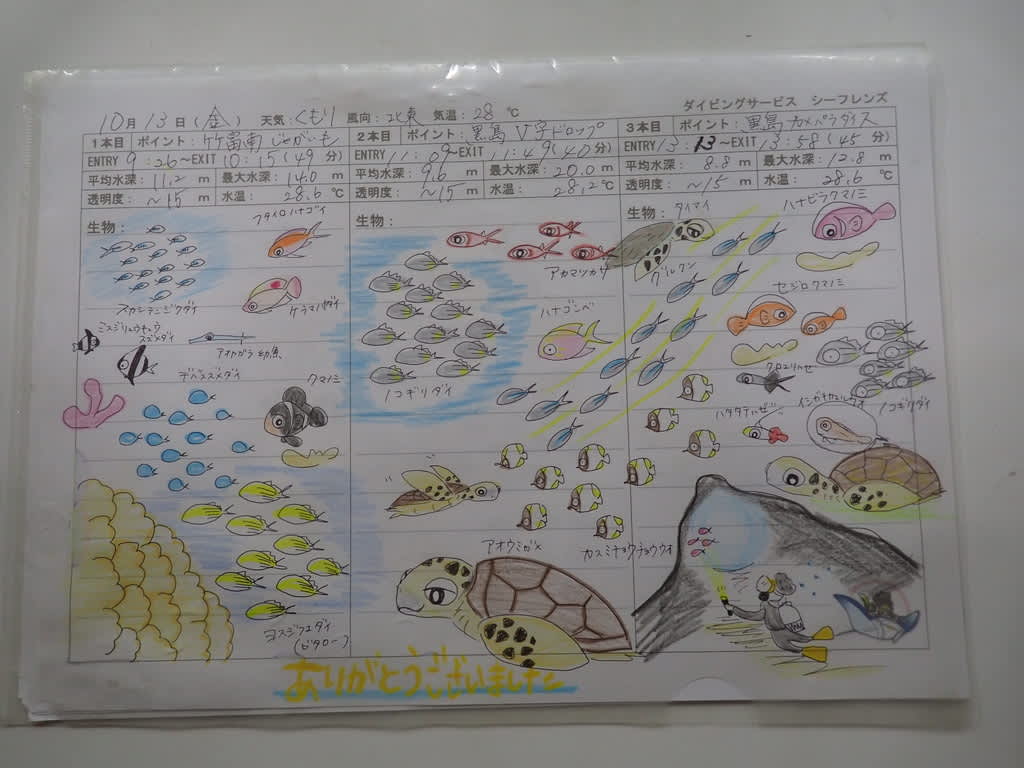 ダイビングサービス シーフレンズ
10月13日(金) 天気:くもり 風向:北東 気温:28℃
1本目 ポイント:竹富南じゃがいも
ENTRY 9:26~EXIT 10:15(49分)
平均水深:11.2m 最大水深:14.0m
透明度:~15m 水温:28.6℃
生物:
フタイロハナゴイ
ケラマハナダイ
スカシテンジクダイ
ミスジリュウキュウ
スズメダイ
アオヤガラ幼魚
デバスズメダイ
クマノミ
ヨスジフエダイ
(ビタロー)
2本目 ポイント:黒島V字ドロップ
ENTRY 11:09~EXIT 11:49(40分)
平均水深:9.6m 最大水深:20.0m
透明度:~15m 水温:28.2℃
生物:
アカマツカサ
ハナゴンベ
ノコギリダイ
アオウミガメ
カスミチョウチョウウオ
3本目 ポイント:黒島カメパラダイス
ENTRY 13:13~EXIT 13:58(45分)
平均水深:8.8m 最大水深:12.8m
透明度:~15m 水温:28.6℃
生物:
タイマイ
ハナビラクマノミ
グルクン
セジロクマノミ
クロユリハゼ
ハタタテハゼ
ノコギリダイ
ありがとうございました